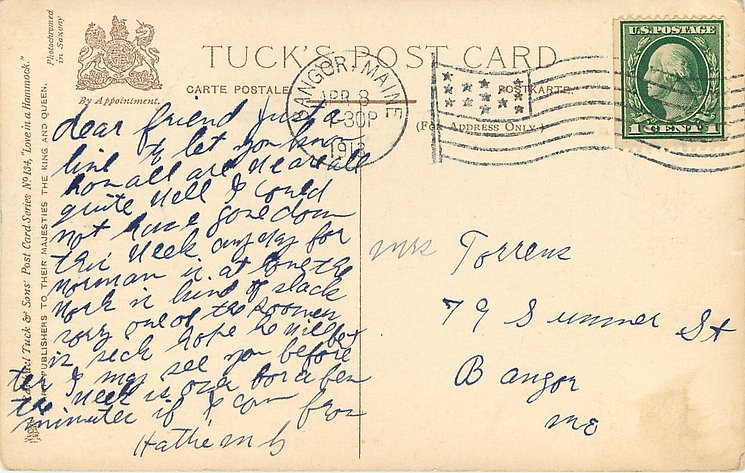 TUCK'S POST CARD
By Appointment.
Photochromed
in Saxony
CARTE POSTALE
POSTKARTE
(For Address Only.)
Tuck & Sons' Post Card Series No 134, "Love in a Hammock."
PUBLISHERS TO THEIR MAJESTIES THE KING AND QUEEN.
BANGOR, MAINE
APR 8
-30P
1912
U.S. POSTAGE
1 CENT 1
dear friend just a
line to let you know
how all are we are all
quite well I could
not have gone down
this week any day for
Norman is at home the
work is kind of slack
sorry one of the
is sick hope he will bet
ter I may see you before
the week is over for a few
minutes if I can from
Mrs Torrens
79 Summer St
Bangor
Me